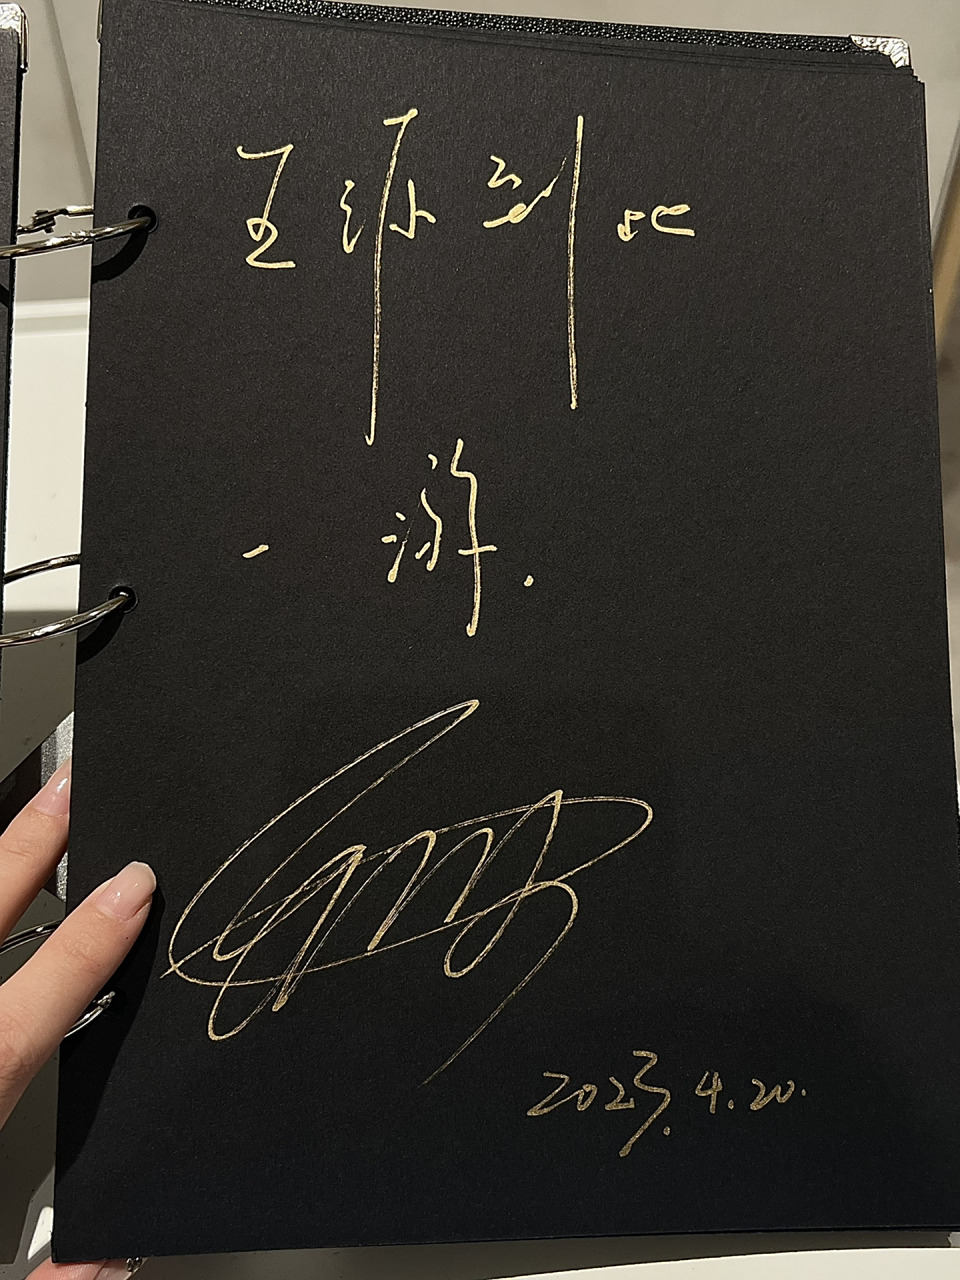 王源到此
一游.
2023.4.20.